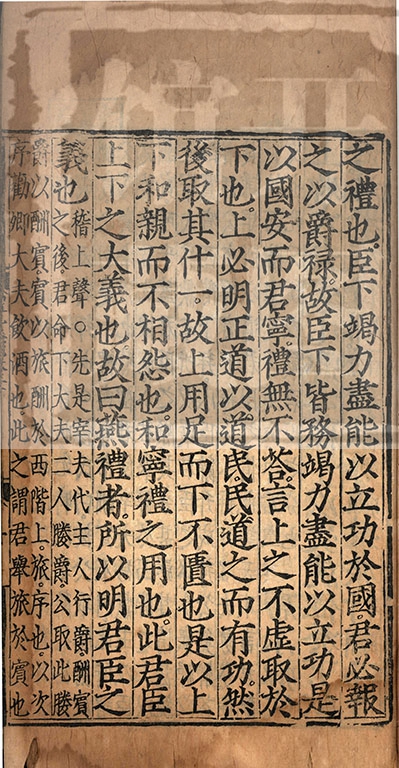 之禮也。臣下竭力盡能以立功於國。君必報
之以爵祿。故臣下皆務竭力盡能以立功。是
以國安而君寧。禮無不荅。言上之不虛取於
下也。上必明正道以道民。民道之而有功。然
後取其什一。故上用足而下不匱也。是以上
下和親而不相怨也。和寧禮之用也。此君臣
上下之大義也。故曰燕禮者。所以明君臣之
義也
稽上聲〇先是宰夫代主人行爵酬賓
之後。君命下大夫二人媵爵。公取此媵
爵以酬賓。賓以旅酬於西階上。旅。序也。以次
序勸卿大夫飲酒也。此之謂君舉旅於賓也